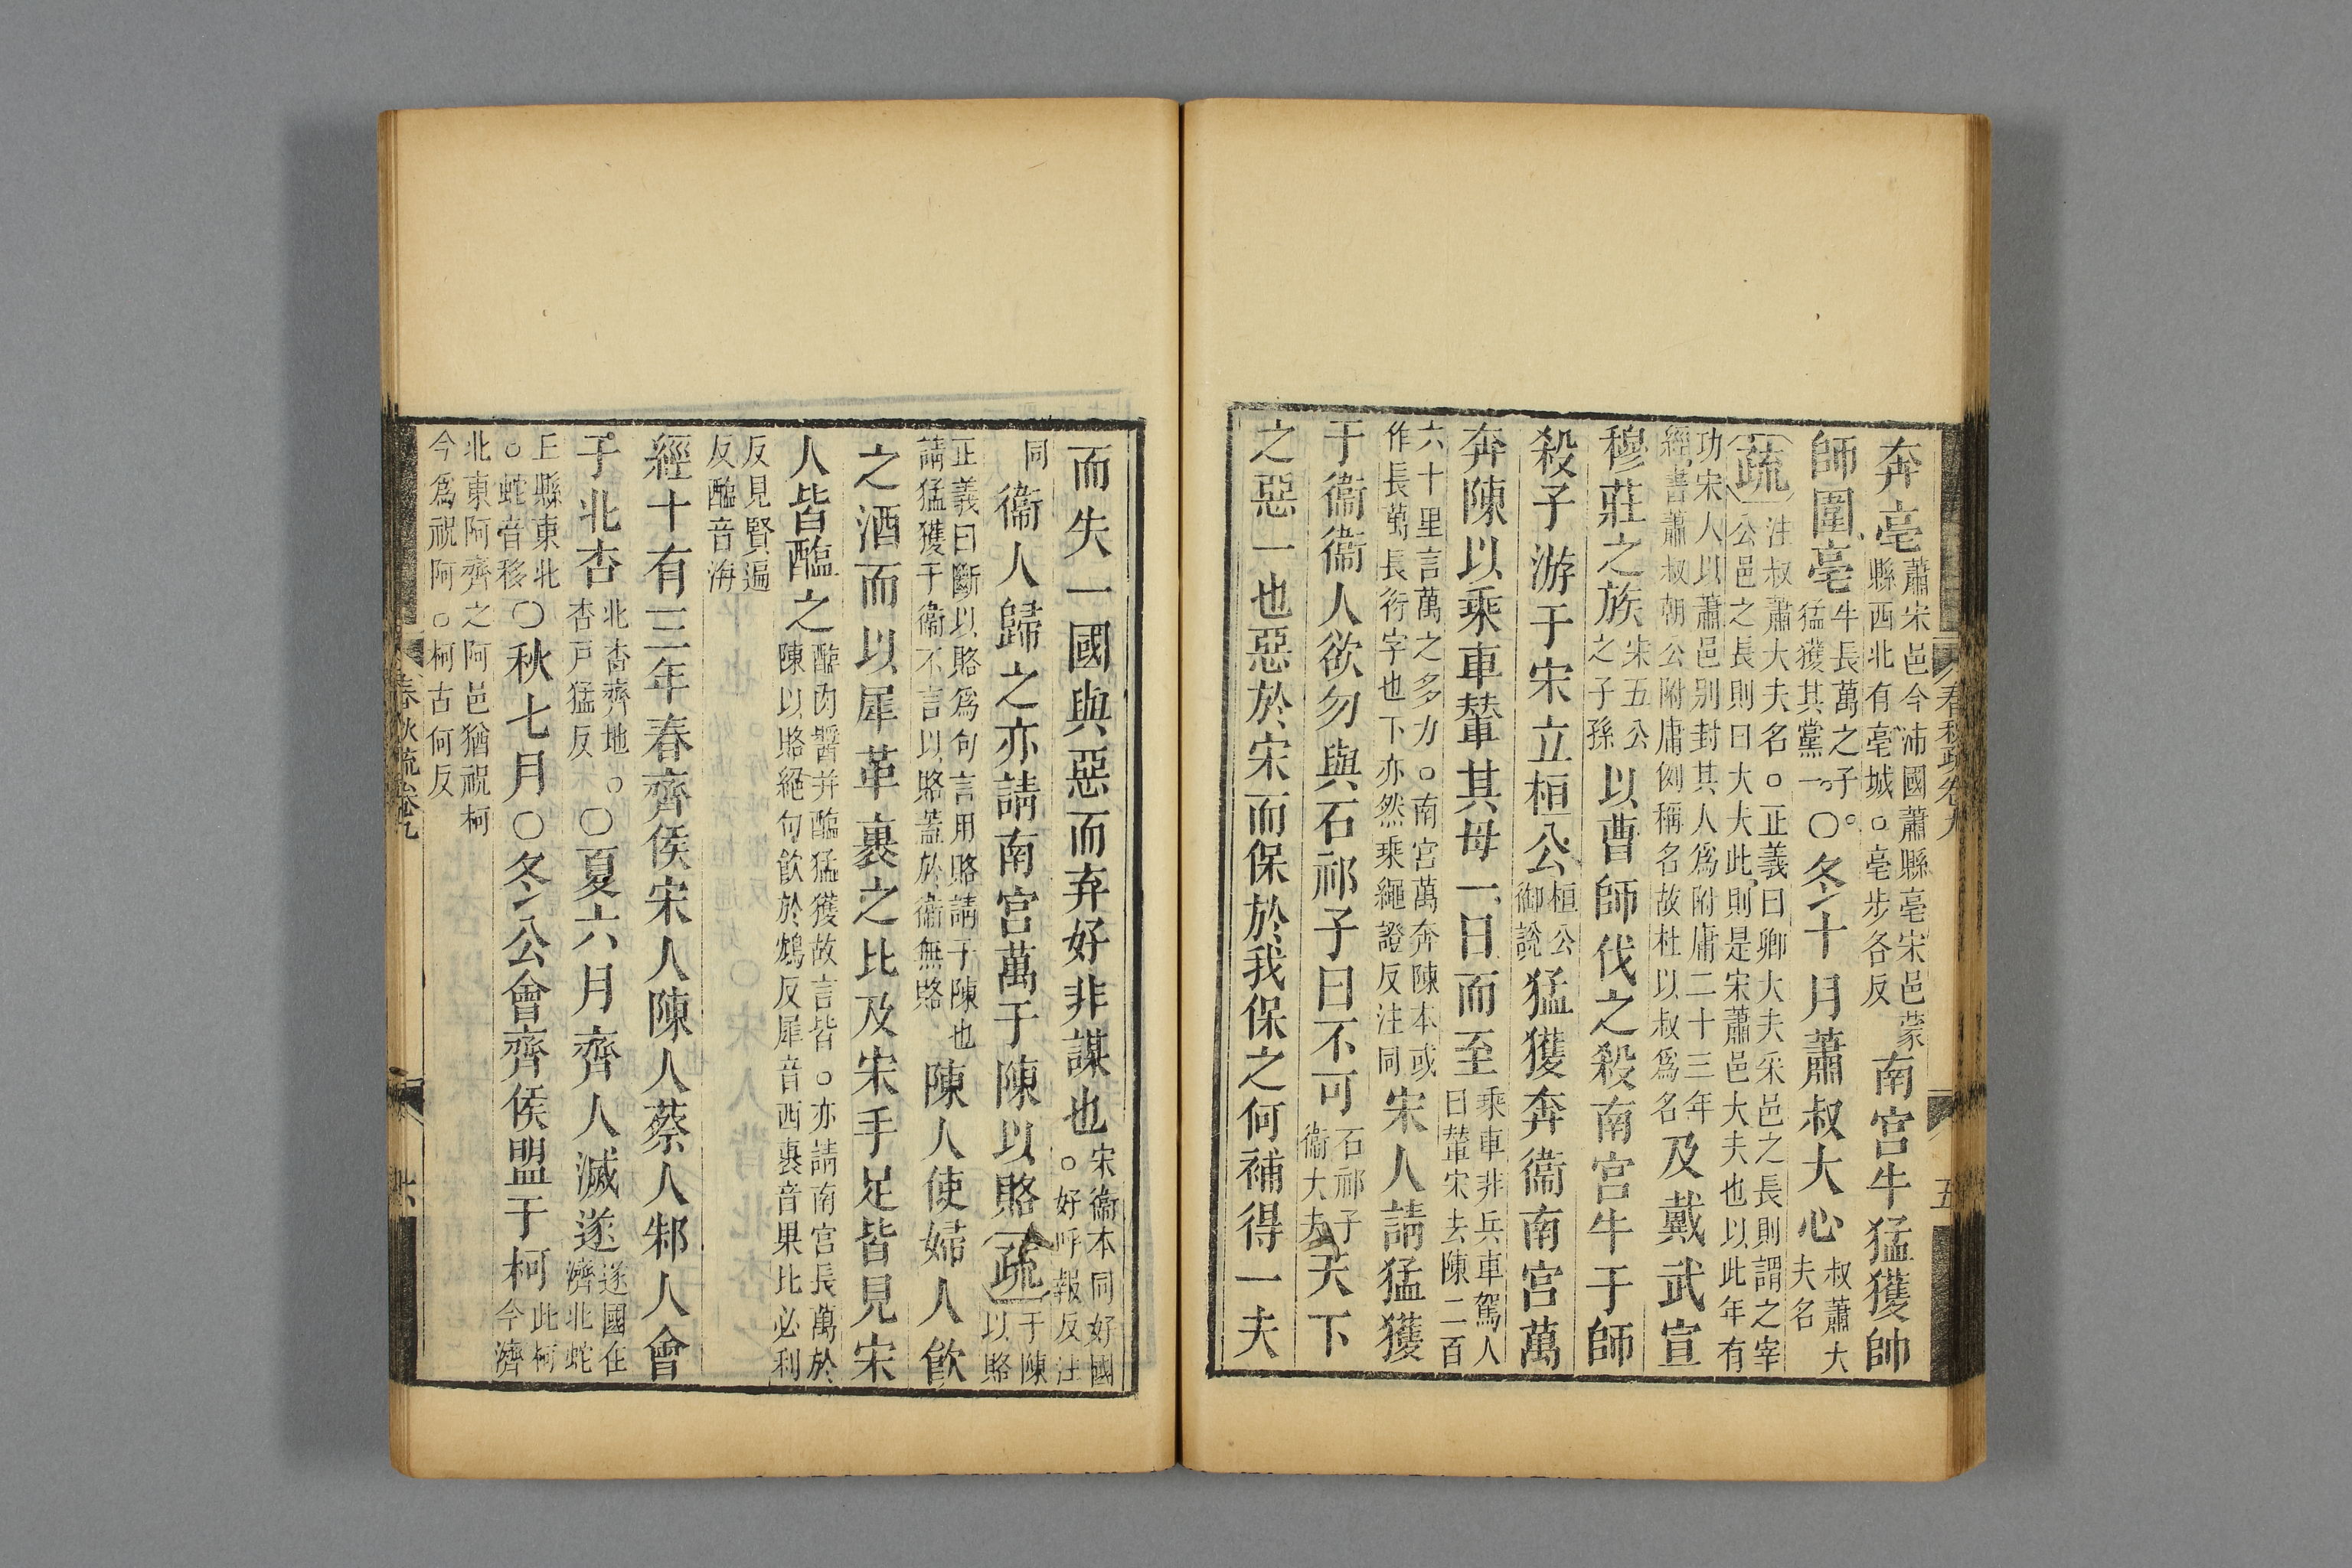 春秋疏卷九
五
奔亳蕭宋邑今沛國蕭縣亳宋邑蒙縣西北有亳城○亳步各反南宮牛猛獲帥
師圍亳牛長萬之子○猛獲其黨○冬十月蕭叔大心叔蕭大夫名
疏注叔蕭大夫名○正義曰卿大夫采邑之長則謂之宰公邑之長則曰大夫此則是宋蕭邑大夫也以此年有
功宋人以蕭邑别封其人爲附庸二十三年經書蕭叔朝公附庸例稱名故杜以叔爲名及戴武宣
穆莊之族宋五公之子孫以曹師伐之殺南宮牛于師
殺子游于宋立桓公桓公御說猛獲奔衞南宮萬
奔陳以乘車輦其母一日而至乘車非兵車駕人曰輦宋去陳二百
六十里言萬之多力○南宮萬奔陳本或作長萬長衍字也下亦然乘繩證反注同宋人請猛獲
于衞衞人欲勿與石祁子曰不可石祁子衞大夫天下
之惡一也惡於宋而保於我保之何補得一夫
而失一國與惡而弃好非謀也宋衞本同好國○好呼報反注
同衞人歸之亦請南宮萬于陳以賂疏于陳以賂
正義曰斷以賂爲句言用賂請于陳也請猛獲于衞不言以賂蓋於衞無賂陳人使婦人飮
之酒而以犀革裹之比及宋手足皆見宋
人皆醢之醢肉醬并醢猛獲故言皆○亦請南宮長萬於陳以賂絕句飮於鴆反犀音西裹音果比必利
反見賢遍反醢音海
經十有三年春齊侯宋人陳人蔡人邾人會
于北杏北杏齊地○杏戸猛反○夏六月齊人滅遂遂國在濟北蛇
丘縣東北○蛇音移○秋七月○冬公會齊侯盟于柯此柯今濟
北東阿齊之阿邑猶祝柯今爲祝阿○柯古何反
春秋疏卷九